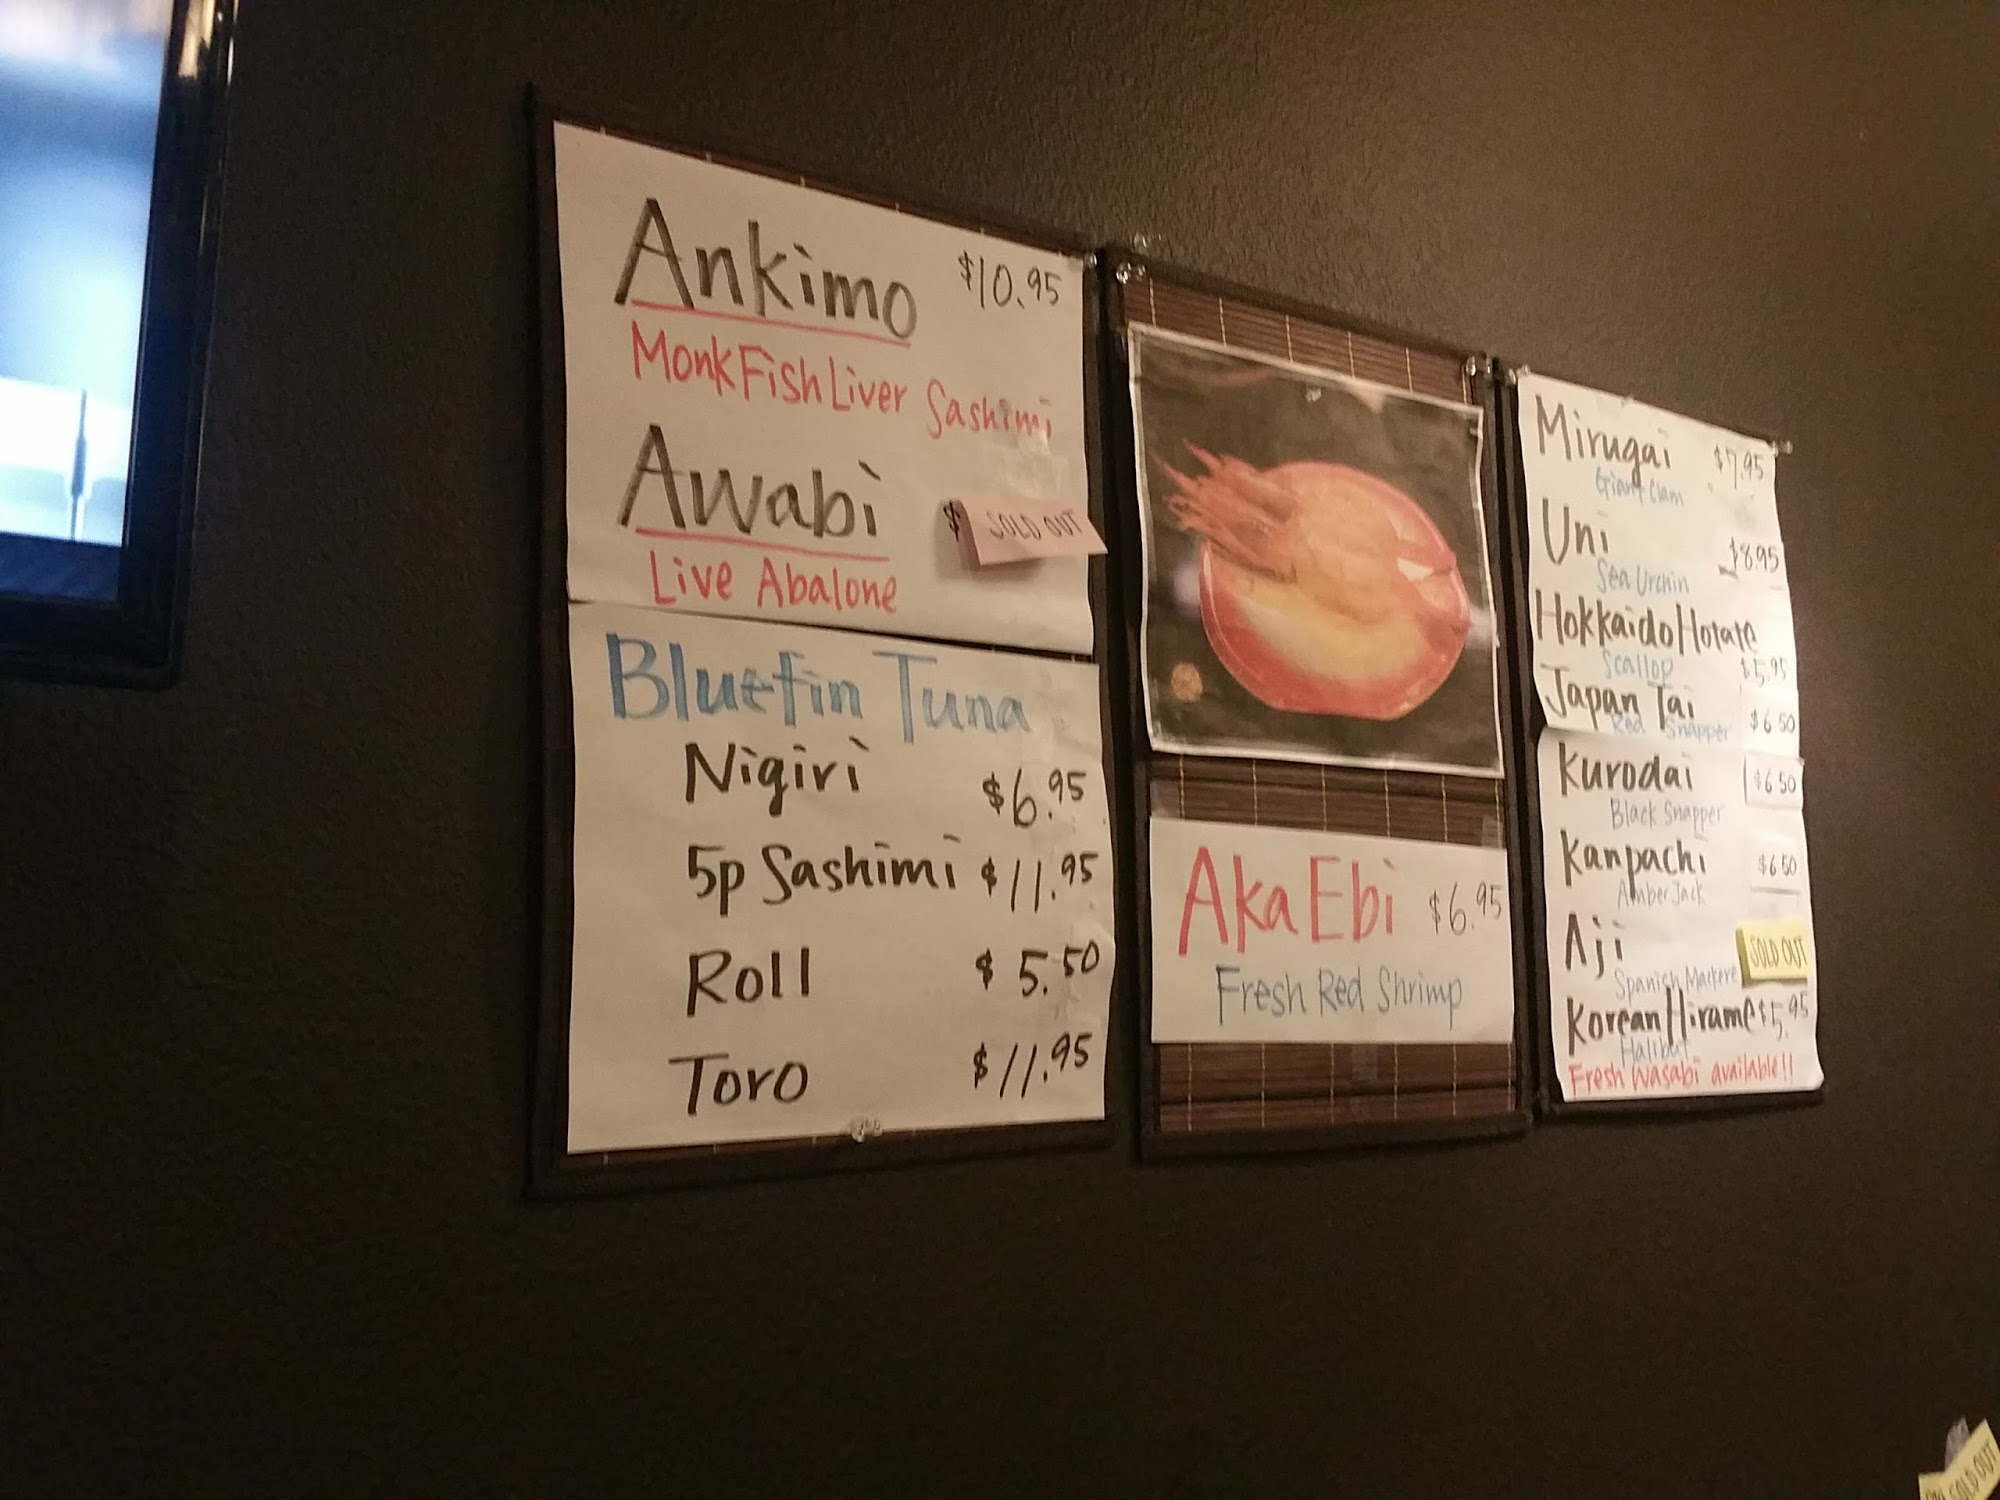 Ankimo $10.95
MonkFishLiver Sashimi
Awabi $ SOLD OUT
Live Abalone
Bluefin Tuna
Nigiri $6.95
5p Sashimi $11.95
Roll $5.50
Toro $11.95
Aka Ebi $6.95
Fresh Red Shrimp
Mirugai $7.95
Giant Clam
Uni $8.95
Sea Urchin
Hokkaido Hotate
Scallop $5.95
Japan Tai $6.50
Red Snapper
Kurodai $6.50
Black Snapper
Kanpachi $6.50
Amber Jack
Aji SOLD OUT
Spanish Mackere
Korean Hirame $5.95
Halibut
Fresh Wasabi available!!
SOLD OUT